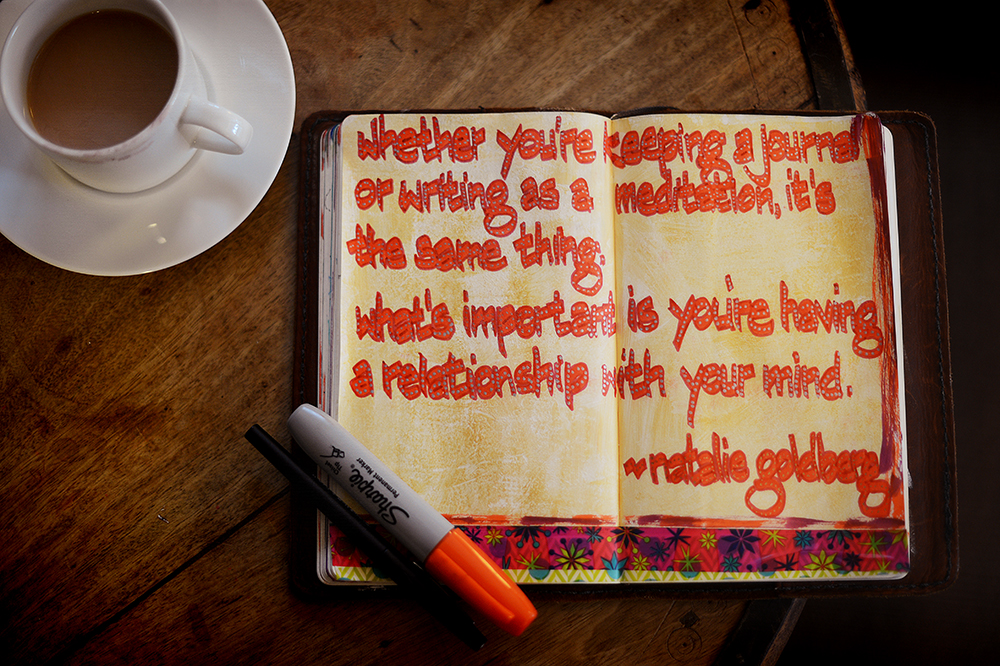 whether you're keeping a journal
or writing as a meditation, it's
the same thing;
what's important is you're having
a relationship with your mind.
~ natalie goldberg
Sharpie®
Permanent Marker